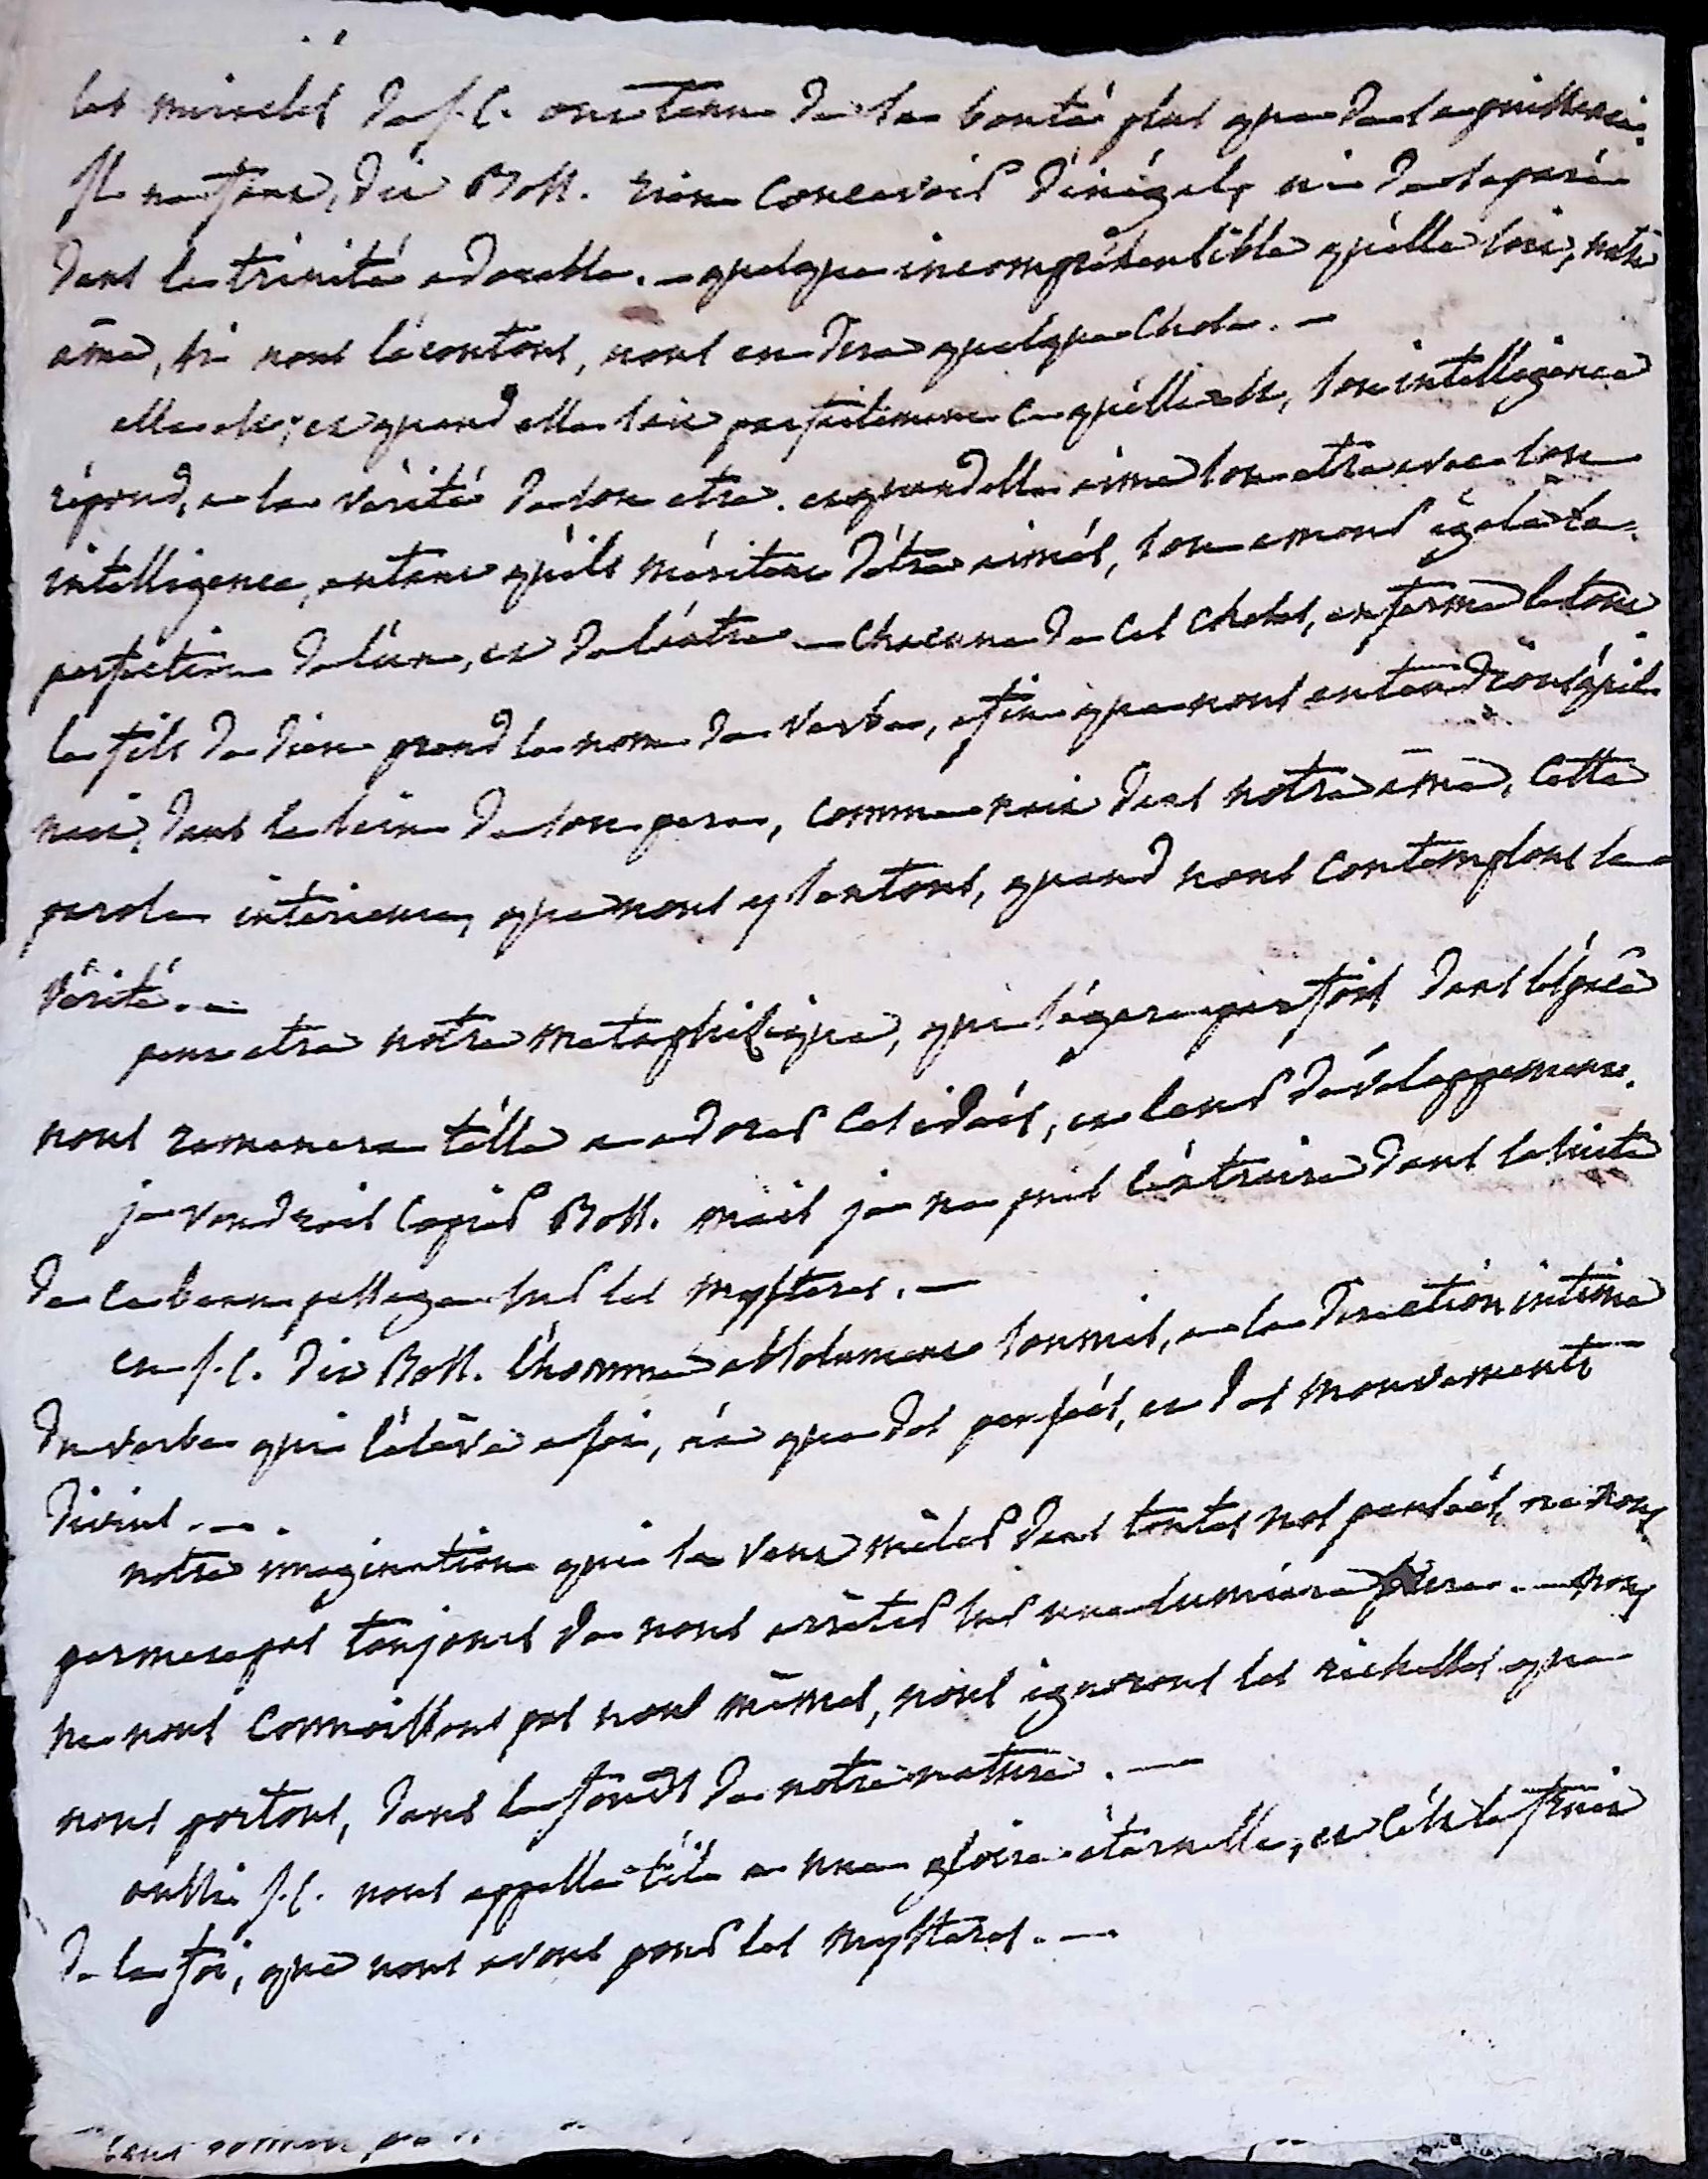 les miracles de J.C. ont tenu de la bonté plus que de la puissance.
Il ne faut, dit Boss. rien concevoir d'inégal, ni de separé
dans la trinité adorable. — quelque incompréhensible qu'elle soit, notre
ame, si nous l'écoutons, nous en dira quelque chose. —
elle est; et quand elle sait parfaitement ce qu'elle est, son intelligence
répond, a la vérité de son etre. et quand elle aime son etre avec son
intelligence, autant qu'ils méritent d'être aimés, son amour égale la
perfection de l'un, et de l'autre — chacune de ces choses, enferme le tout
le fils de dieu prend le nom de verbe, afin que nous entendions qu'il
nait, dans le sein de son pere, comme nait dans notre ame, cette
parole intérieure, que nous y sentons, quand nous contemplons la
vérité. —
peut etre notre metaphisique, qui s'égare parfois dans l'espace
nous ramenera t'elle a adorer ces idées, en leur développement.
je voudrois copier Boss. mais je ne puis l'extraire dans la suite
de ce beau passage sur les mysteres. —
en J.C. dit Boss. l'homme absolument soumis, a la direction intime
du verbe qui l'élève a soi, n'a que des pensées, et des mouvements
divins. —.
notre imagination qui se veut mêler dans toutes nos pensées, ne nous
permet pas toujours de nous arrêter sur une lumière pure. — nous
ne nous connoissons pas nous mêmes, nous ignorons les richesses que
nous portons, dans le fonds de notre nature. —
aussi J.C. nous appelle t'il a une gloire éternelle, et c'est le fruit
de la foi, que nous avons pour les mysteres. —